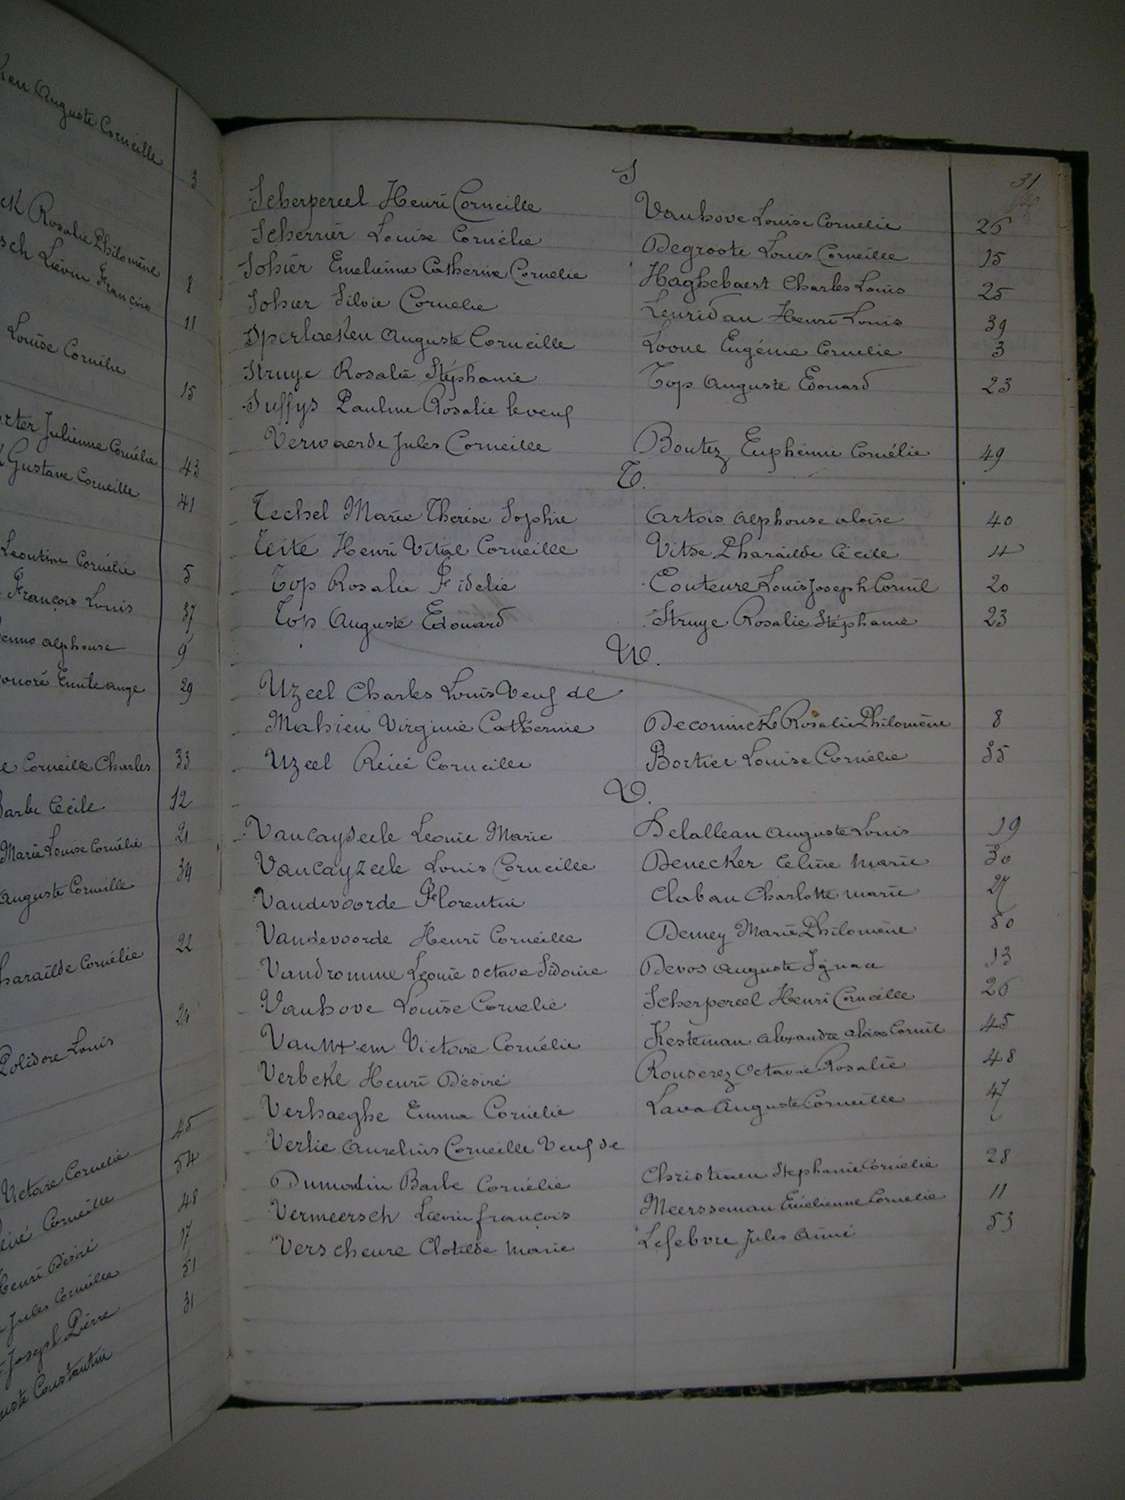 Auguste Corneille 3
Rosalie Philomène 8
Liévin François 11
Louise Cornélie 15
Julienne Cornélie 43
Gustave Corneille 41
Léontine Cornélie 5
François Louis 37
alphonse 9
Emile ange 29
Corneille Charles 33
Barbe Cécile 12
Marie Louise Cornélie 21
Auguste Corneille 34
Pharaïlde Cornélie 22
Polidore Louis
45
Victoire Cornélie 54
Corneille 48
Henri Désiré 17
Jules Corneille 51
Joseph Pierre 31
Constantin
31
S
Scherpereel Henri Corneille Vanhove Louise Cornélie 26
Scherrier Louise Cornélie Degroote Louis Corneille 15
Sohier Emelienne Catherine Cornélie Haghebaert Charles Louis 25
Sohier Silvie Cornélie Leuridan Henri Louis 39
Sperlaeken Auguste Corneille Loone Eugénie Cornélie 3
Struye Rosalie Stéphanie Top Auguste Edouard 23
Suffys Pauline Rosalie veuf
Verwaerde Jules Corneille Boutez Euphémie Cornélie 49
T.
Techel Marie Thérèse Sophie Artois alphonse aloïse 40
Teite Henri Vital Corneille Vitse Pharaïlde Cécile 4
Top Rosalie Fidelie Couteure Louis Joseph Cornil 20
Top Auguste Edouard Struye Rosalie Stéphanie 23
U.
Uzeel Charles Louis Veuf de
Mahieu Virginie Catherine Deconinck Rosalie Philomène 8
Uzeel Réné Corneille Bortier Louise Cornélie 35
V.
Vancayseele Léonie Marie Delalleau Auguste Louis 19
Vancayzeele Louis Corneille Denecker Céline Marie 30
Vandevoorde Florentin Claban Charlotte marie 27
Vandevoorde Henri Corneille Demey Marie Philomène 50
Vandromme Léonie octavie Sidonie Devos Auguste Ignace 13
Vanhove Louise Cornélie Scherpereel Henri Corneille 26
Victoire Cornélie Kesteman Alexandre Cornil 45
Verbeke Henri Désiré Rouserez Octavie Rosalie 48
Verhaeghe Emma Cornélie Lava Auguste Corneille 47
Verlie Aurelius Corneille Veuf de
Dumortin Barbe Cornélie Christiaen Stéphanie Cornélie 28
Vermeersch Liévin françois Meersseman Emelienne Cornélie 11
Verscheure Clotilde Marie Lefebvre Jules Aimé 53